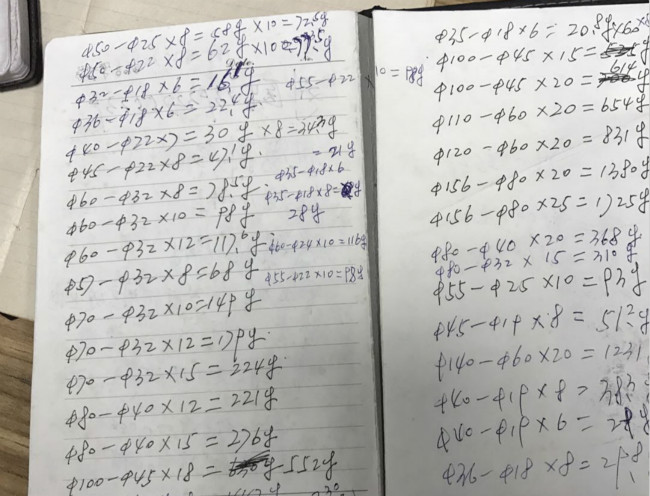 φ50-φ25×8=58g×10=72.5g
φ50-φ22×8=62g×10=77.5g
φ32-φ18×6=16.1g
φ55-φ22×10=98g
φ36-φ18×6=22.4g
φ40-φ22×7=30g×8=34.3g
φ45-φ22×8=47.1g
φ35-φ18×6=21g
φ60-φ32×8=78.5g
φ35-φ18×8=28g
φ60-φ32×10=98g
φ60-φ32×12=117.6g
φ60-φ24×10=116g
φ57-φ32×8=68g
φ55-φ22×10=98g
φ70-φ32×10=149g
φ70-φ32×12=179g
φ70-φ32×15=224g
φ80-φ40×12=221g
φ80-φ40×15=276g
φ100-φ45×18=552g
φ35-φ18×6=20.8g
φ100-φ45×15=
φ100-φ45×20=614
φ110-φ60×20=654g
φ120-φ60×20=831g
φ156-φ80×20=1380g
φ156-φ80×25=1725g
φ80-φ40×20=368g
φ80-φ32×15=310g
φ55-φ25×10=93g
φ45-φ19×8=51.2g
φ140-φ60×20=1231
φ40-φ19×8=38.3g
φ40-φ19×6=28g
φ36-φ18×8=29.8